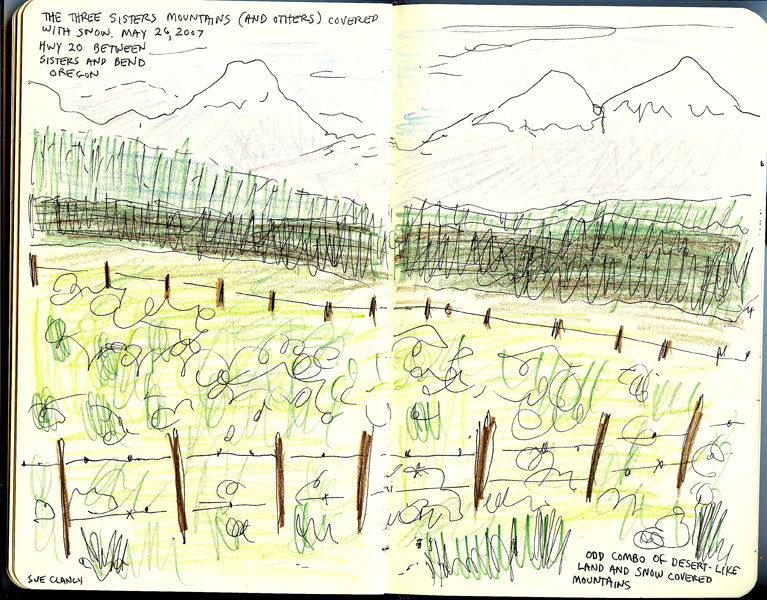 THE THREE SISTERS MOUNTAINS (AND OTHERS) COVERED
WITH SNOW. MAY 26, 2007
HWY 20 BETWEEN
SISTERS AND BEND
OREGON
SUE CLANCY
ODD COMBO OF DESERT-LIKE
LAND AND SNOW COVERED
MOUNTAINS